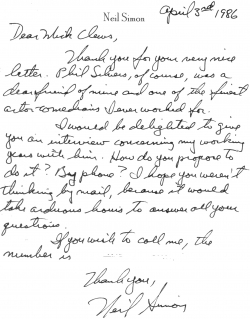 Neil Simon
April 3rd 1986
Dear Mick Clews,
Thank you for your very nice
letter. Phil Silvers, of course, was a
dear friend of mine and one of the finest
actor-comedians I ever worked for.
I would be delighted to give
you an interview concerning my working
years with him. How do you propose to
do it? By phone? I hope you weren't
thinking by mail, because it would
take arduous hours to answer all your
questions.
If you wish to call me, the
number is
Thank you,
Neil Simon